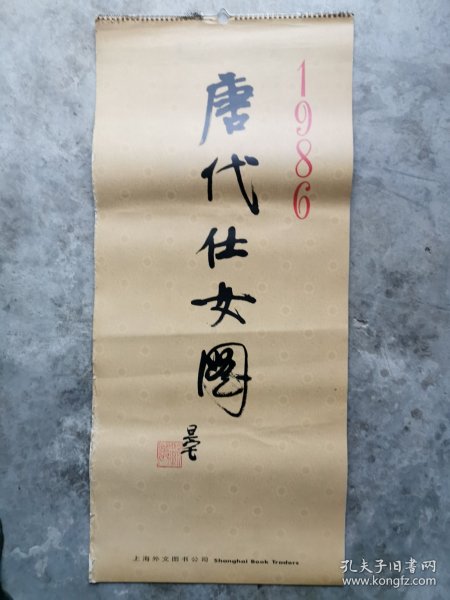 1986
唐代仕女图
上海外文图书公司 Shanghai Book Traders
孔夫子旧书网
www.kongfz.com